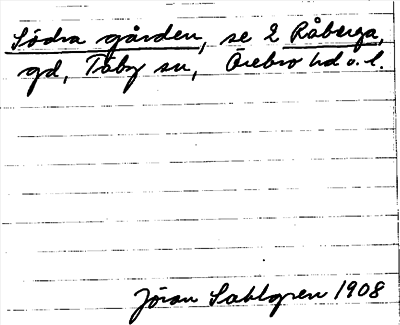 Södra gården, se 2 Råberga,
gd, Täby sn, Örebro hd o. l.
Jöran Sahlgren 1908